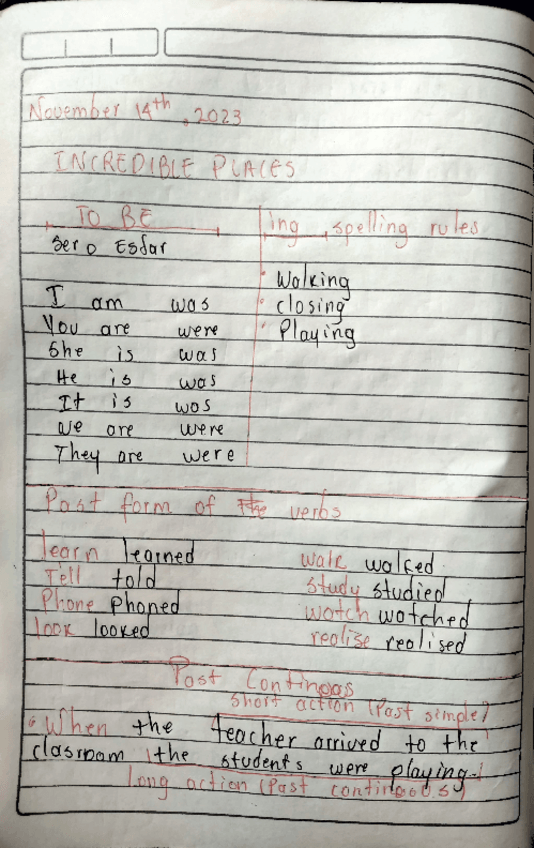 November 14th, 2023
INCREDIBLE PLACES
TO BE
Ser o Esfar
I am was
You are were
She is was
He is was
It is was
We are were
They are were
ing, spelling rules
Walking
closing
Playing
Past form of the verbs
learn learned
Tell told
Phone Phoned
look looked
walk walked
study studied
watch watched
realise realised
Past Continoas
Short action (Past simple)
When the teacher arrived to the
clasroam the students were playing
Long action (Past continoo.s)